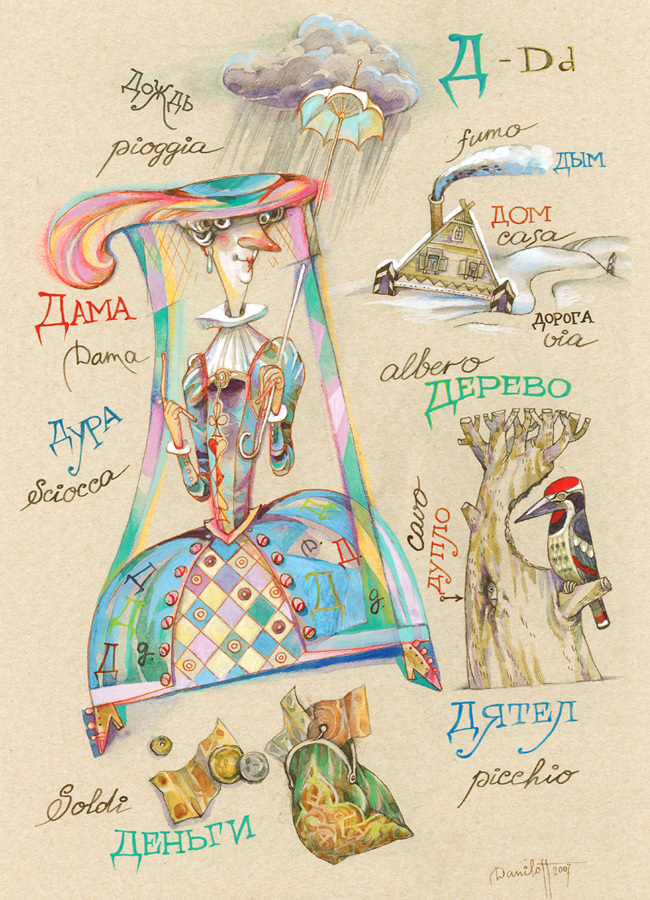 Д - Dd
Дождь
pioggia
fumo
дым
дом
casa
дорога
via
Дама
Dama
albero
дерево
Дура
Sciocca
cavo
дупло
Д
Д
Д
д
Д
Д
Д
g.
Д
g.
Дятел
picchio
Soldi
деньги
Daniloff 2007